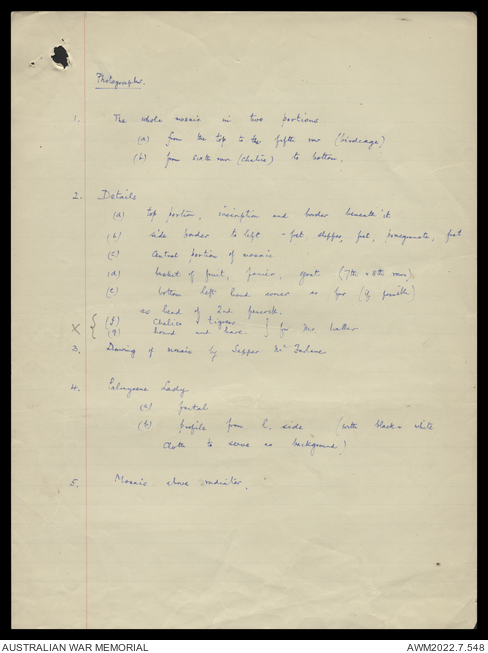 Photographs.
1. The whole mosaic in two portions
(a) from the top to the fifth row (birdcage)
(b) from sixth row (chalice) to bottom.
2. Details
(a) top portion, inscription and border beneath it
(b) side border to left - feet, pomegranate, feet
(c) Central portion of mosaic
(d) basket of fruit, (7th & 8th rows)
(e) bottom left hand corner as far (if possible)
as head of 2nd peacock.
X { (f) Chalice & tigress
(g) hound and hare } for Mr Walker
3. Drawing of mosaic by Sapper McFarlane
4. Palmyrene Lady
(a) frontal
(b) profile from L. side (with black & white
cloth to serve as background)
5. Mosaic above radiator.
AUSTRALIAN WAR MEMORIAL
AWM2022.7.548